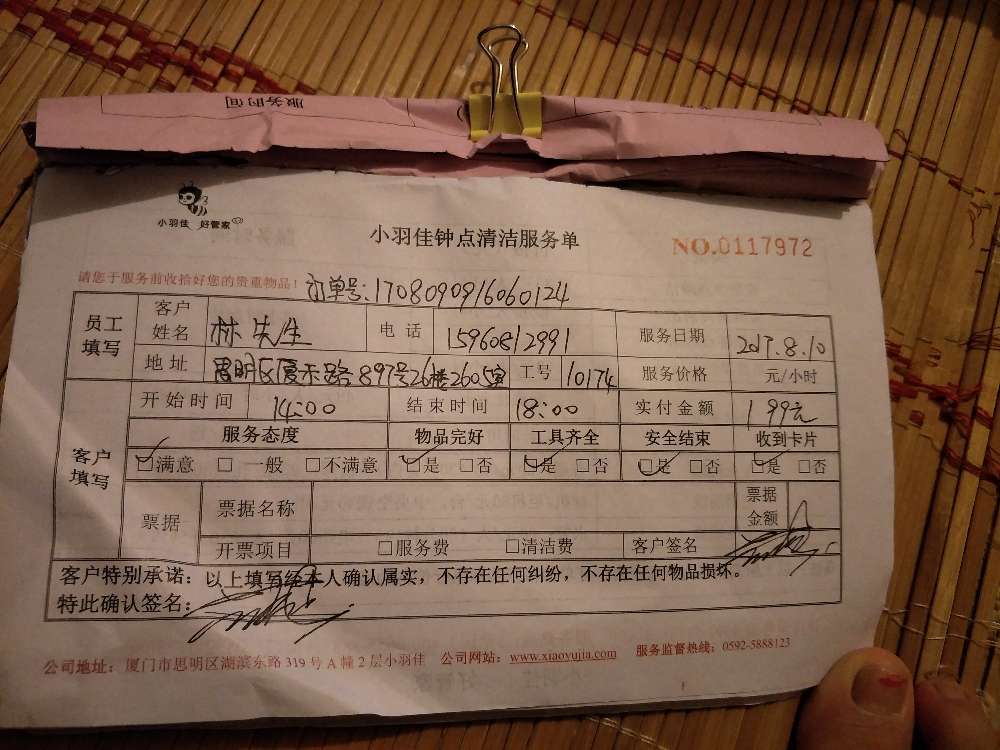 服务时间
小羽佳 好管家
小羽佳钟点清洁服务单
NO.0117972
请您于服务前收拾好您的贵重物品！ 订单号:1708090916060124
员工填写 客户姓名 林先生 电话 15960812991 服务日期 2017.8.10
地址 思明区厦禾路897号26楼2605室 工号 10174 服务价格 元/小时
客户填写 开始时间 14:00 结束时间 18:00 实付金额 199元
服务态度 物品完好 工具齐全 安全结束 收到卡片
☑满意 □一般 □不满意 ☑是 □否 ☑是 □否 ☑是 □否 ☑是 □否
票据 票据名称 票据金额
开票项目 □服务费 □清洁费 客户签名
客户特别承诺：以上填写经本人确认属实，不存在任何纠纷，不存在任何物品损坏。
特此确认签名：
公司地址：厦门市思明区湖滨东路319号A幢2层小羽佳 公司网站：www.xiaoyujia.com 服务监督热线：0592-5888123